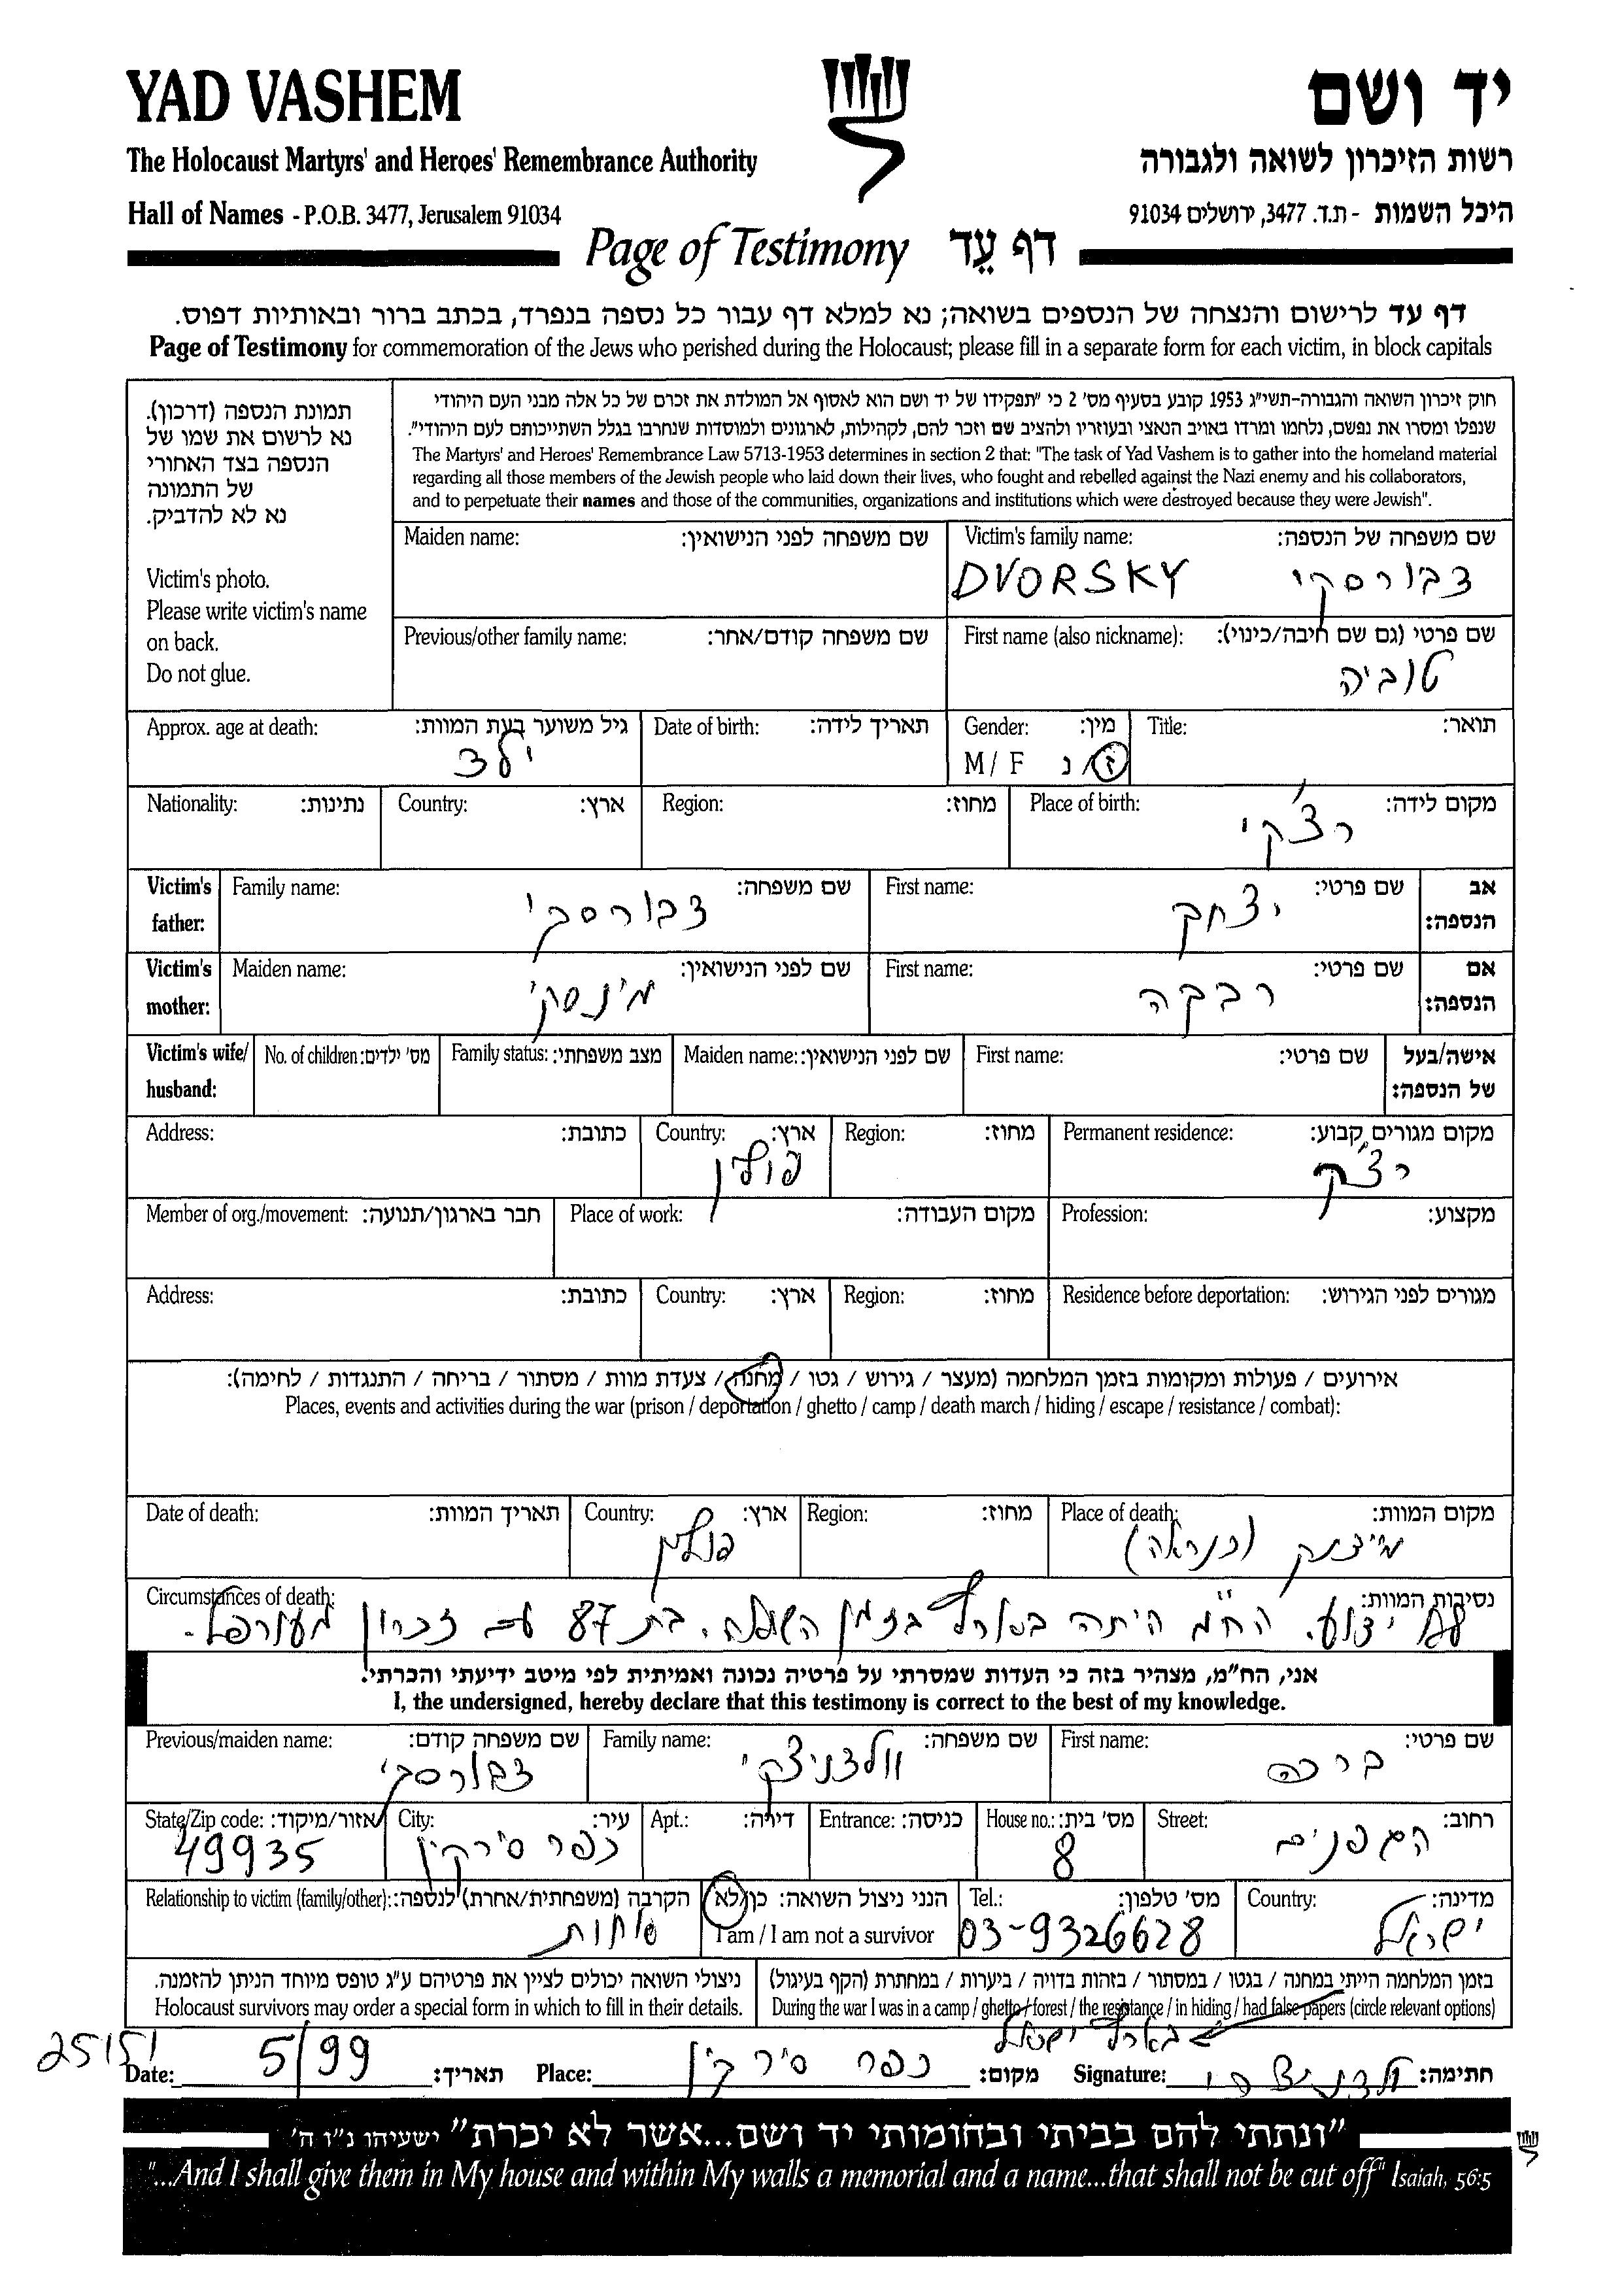 YAD VASHEM
יד ושם
The Holocaust Martyrs' and Heroes' Remembrance Authority
רשות הזיכרון לשואה ולגבורה
Hall of Names - P.O.B. 3477, Jerusalem 91034
היכל השמות - ת.ד. 3477, ירושלים 91034
Page of Testimony דף עֵד
דף עד לרישום והנצחה של הנספים בשואה; נא למלא דף עבור כל נספה בנפרד, בכתב ברור ובאותיות דפוס.
Page of Testimony for commemoration of the Jews who perished during the Holocaust; please fill in a separate form for each victim, in block capitals
תמונת הנספה (דרכון).
נא לרשום את שמו של
הנספה בצד האחורי
של התמונה
נא לא להדביק.
Victim's photo.
Please write victim's name
on back.
Do not glue.
חוק זיכרון השואה והגבורה-תשי"ג 1953 קובע בסעיף מס' 2 כי "תפקידו של יד ושם הוא לאסוף אל המולדת את זכרם של כל אלה מבני העם היהודי
שנפלו ומסרו את נפשם, נלחמו ומרדו באויב הנאצי ובעוזריו ולהציב שם וזכר להם, לקהילות, לארגונים ולמוסדות שנחרבו בגלל השתייכותם לעם היהודי".
The Martyrs' and Heroes' Remembrance Law 5713-1953 determines in section 2 that: "The task of Yad Vashem is to gather into the homeland material
regarding all those members of the Jewish people who laid down their lives, who fought and rebelled against the Nazi enemy and his collaborators,
and to perpetuate their names and those of the communities, organizations and institutions which were destroyed because they were Jewish".
Victim's family name: שם משפחה של הנספה:
DVORSKY דבורסקי
Maiden name: שם משפחה לפני הנישואין:
First name (also nickname): שם פרטי (גם שם חיבה/כינוי):
טוביה
Previous/other family name: שם משפחה קודם/אחר:
Title: תואר:
Gender: מין:
M / F ז/נ
Date of birth: תאריך לידה:
Approx. age at death: גיל משוער בעת המוות:
ילד
Place of birth: מקום לידה:
רצ'קי
Region: מחוז:
Country: ארץ:
Nationality: נתינות:
Victim's father: אב הנספה:
First name: שם פרטי:
יצחק
Family name: שם משפחה:
דבורסקי
Victim's mother: אם הנספה:
First name: שם פרטי:
רבקה
Maiden name: שם לפני הנישואין:
מינסקי
Victim's wife/ husband: אישה/בעל של הנספה:
First name: שם פרטי:
Maiden name: שם לפני הנישואין:
Family status: מצב משפחתי:
No. of children: מס' ילדים:
Permanent residence: מקום מגורים קבוע:
רצ'ק
Region: מחוז:
Country: ארץ:
פולין
Address: כתובת:
Profession: מקצוע:
Place of work: מקום העבודה:
Member of org./movement: חבר בארגון/תנועה:
Residence before deportation: מגורים לפני הגירוש:
Region: מחוז:
Country: ארץ:
Address: כתובת:
אירועים / פעולות ומקומות בזמן המלחמה (מעצר / גירוש / גטו / מחנה / צעדת מוות / מסתור / בריחה / התנגדות / לחימה):
Places, events and activities during the war (prison / deportation / ghetto / camp / death march / hiding / escape / resistance / combat):
Place of death: מקום המוות:
מיידנק (כנראה)
Region: מחוז:
Country: ארץ:
פולין
Date of death: תאריך המוות:
Circumstances of death: נסיבות המוות:
לא ידוע. הח"מ היתה בארץ בזמן השואה. בת 87 עם זכרון מעורפל.
אני, הח"מ, מצהיר בזה כי העדות שמסרתי על פרטיה נכונה ואמיתית לפי מיטב ידיעתי והכרתי.
I, the undersigned, hereby declare that this testimony is correct to the best of my knowledge.
First name: שם פרטי:
ברכה
Family name: שם משפחה:
וולדניצקי
Previous/maiden name: שם משפחה קודם:
דבורסקי
Street: רחוב:
הגפנים
House no.: מס' בית:
8
Entrance: כניסה:
Apt.: דירה:
City: עיר:
כפר סירקין
State/Zip code: אזור/מיקוד:
49935
Country: מדינה:
ישראל
Tel.: מס' טלפון:
03-9326628
הנני ניצול השואה: כן/לא
I am / I am not a survivor
Relationship to victim (family/other): הקרבה (משפחתית/אחרת) לנספה:
אחות
בזמן המלחמה הייתי במחנה / בגטו / במסתור / בזהות בדויה / ביערות / במחתרת (הקף בעיגול)
During the war I was in a camp / ghetto / forest / the resistance / in hiding / had false papers (circle relevant options)
בארץ ישראל
ניצולי השואה יכולים לציין את פרטיהם ע"ג טופס מיוחד הניתן להזמנה.
Holocaust survivors may order a special form in which to fill in their details.
Signature: חתימה:
Place: כפר סירקין מקום:
Date: 5/99 תאריך:
"ונתתי להם בביתי ובחומותי יד ושם...אשר לא יכרת" ישעיהו נ"ו ה'
"...And I shall give them in My house and within My walls a memorial and a name...that shall not be cut off" Isaiah, 56:5